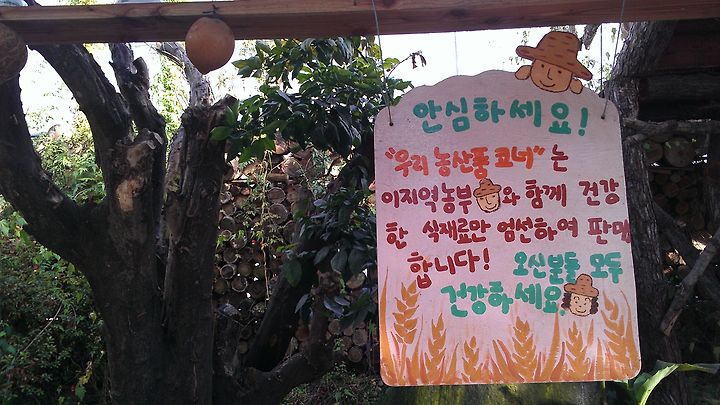 안심하세요!
"우리 농산품 코너"는
이지역농부와 함께 건강
한 식재료만 엄선하여 판매
합니다! 오신분들 모두
건강하세요!